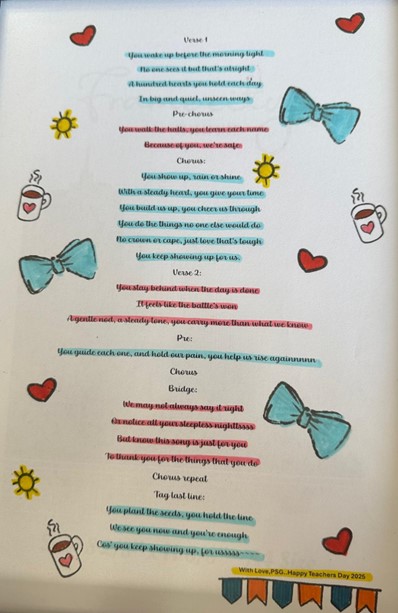 Verse 1
You wake up before the morning light
No one sees it but that's alright
A hundred hearts you hold each day
In big and quiet, unseen ways
Pre-chorus
You walk the halls, you learn each name
Because of you, we're safe
Chorus:
You show up, rain or shine
With a steady heart, you give your time
You build us up, you cheer us through
You do the things no one else would do
No crown or cape, just love that's tough
You keep showing up for us
Verse 2:
You stay behind when the day is done
It feels like the battle's won
A gentle nod, a steady tone, you carry more than what we know
Pre:
You guide each one, and hold our pain, you help us rise againnnnn
Chorus
Bridge:
We may not always say it right
Or notice all your sleepless nighttssss
But know this song is just for you
To thank you for the things that you do
Chorus repeat
Tag last line:
You plant the seeds, you hold the line
We see you now and you're enough
Cos' you keep showing up, for usssss~~~~
With Love,PSG..Happy Teachers Day 2025